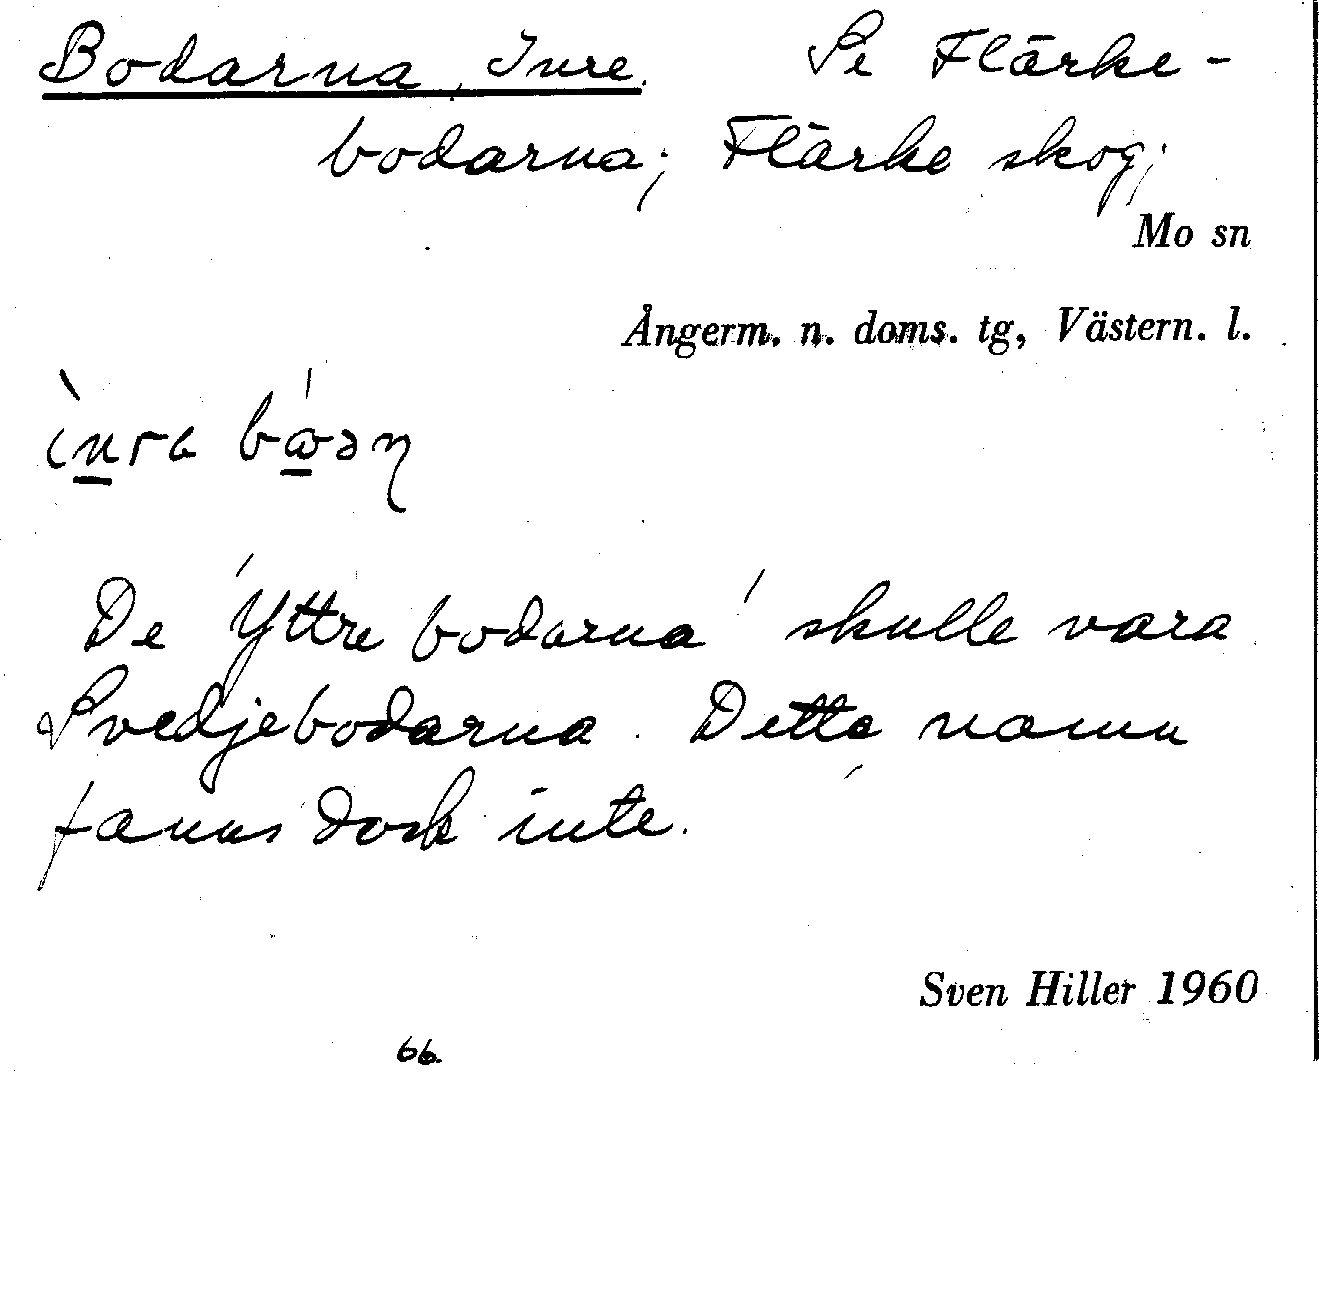 Bodarna, Inre. Se Flärke-
bodarna; Flärke skog;
Mo sn
Ångerm. n. doms. tg, Västern. l.
De 'Yttre bodarna' skulle vara
Svedjebodarna. Detta namn
fanns dock inte.
Sven Hiller 1960
66.